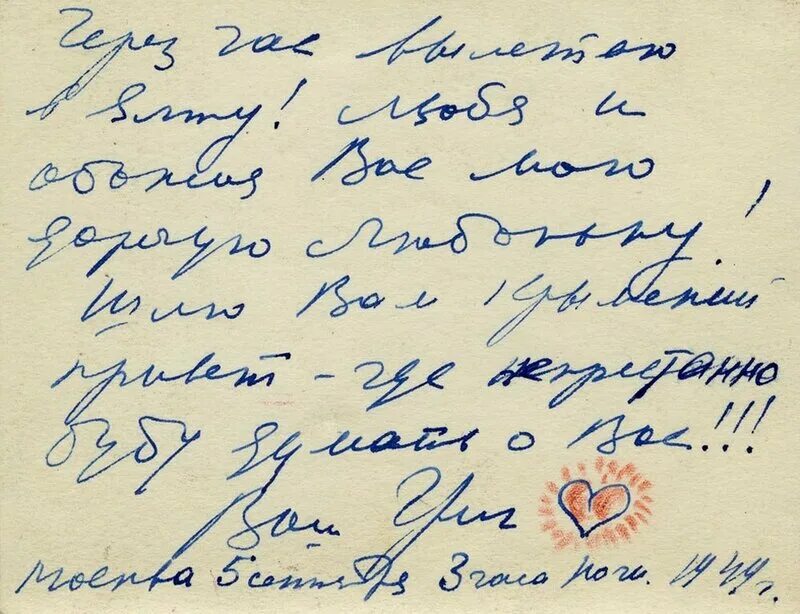 Через час вылетаю
в Ялту! Любя и
обожая Вас мою
дорогую Любоньку!
Шлю Вам Крымский
привет - где непрестанно
буду думать о Вас!!!
Ваш
Москва 5 сентября 3 часа ночи. 1944 г.